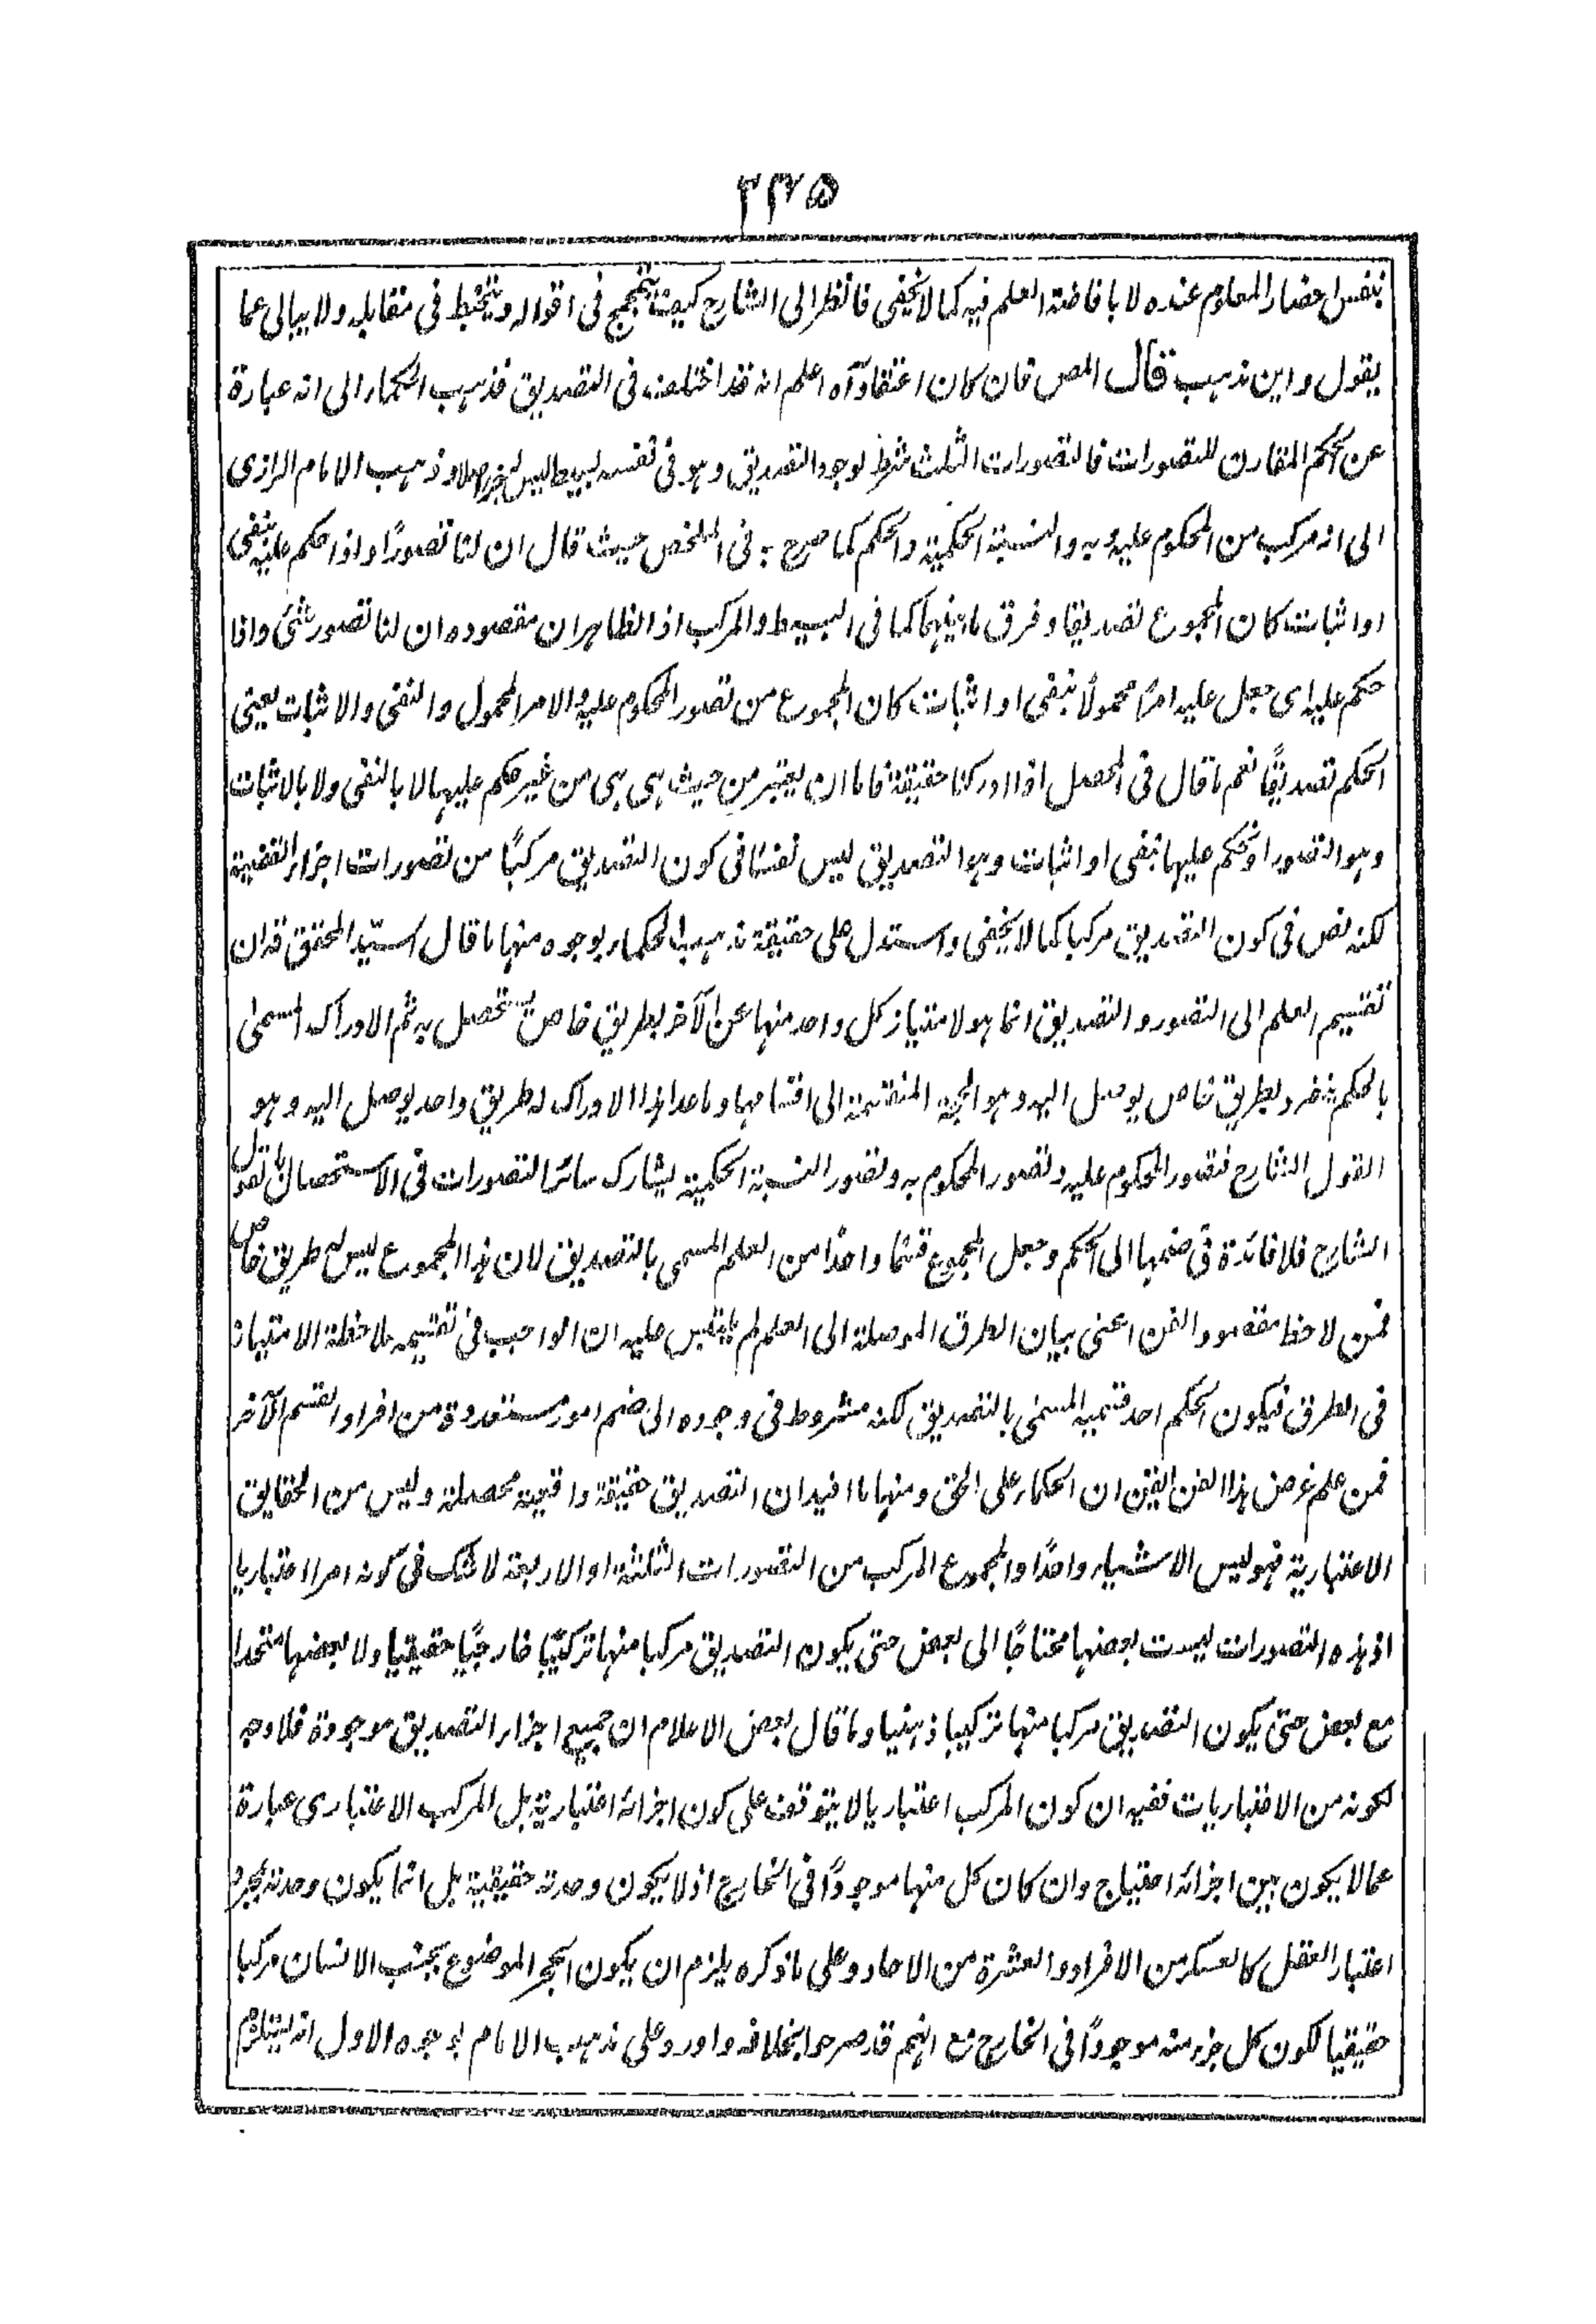 ٢٣٥
بنفس احضار المعلوم عنده لا بافاضة العلم فيه كما لا يخفى فانظر الى الشارح كيف يتمجمج فى اقواله ويتخبط فى مقابله ولا يبالى عما
يقول واين تذهب قال المص فان كان اعتقادا آه اعلم انه قد اختلف فى التصديق فذهب الحكماء الى انه عبارة
عن الحكم المقارن للتصورات فالتصورات الثلث شرط لوجود التصديق وهو فى نفسه بسيط ليس له جزء اصلا وذهب الامام الرازى
الى انه مركب من المحكوم عليه وبه والنسبة الحكمية والحكم كما صرح به فى الملخص حيث قال ان لنا تصورًا واذا حكم عليه بنفى
او اثبات كان المجموع تصديقا وفرق ما بينهما كما فى البسيط والمركب اذ الظاهر ان مقصوده ان لنا تصور شئ واذا
حكم عليه اى جعل عليه امرًا محمولًا بنفى او اثبات كان المجموع من تصور المحكوم عليه والامر المحمول والنفى والاثبات يعنى
الحكم تصديقًا نعم ما قال فى المحصل اذا ادركنا حقيقة فاما ان يعتبر من حيث هى هى من غير حكم عليها لا بالنفى ولا بالاثبات
وهو التصور او نحكم عليها بنفى او اثبات وهو التصديق ليس نصًا فى كون التصديق مركبًا من تصورات اجزاء القضية
لكنه نص فى كون التصديق مركبا كما لا يخفى واستدل على حقيقة مذهب الحكماء بوجوه منها ما قال السيّد المحقق قد ان
تقسيم العلم الى التصور والتصديق انما هو لامتياز كل واحد منها عن الآخر بطريق خاص يستحصل به ثم الادراك المسمى
بالحكم ينفرد بطريق خاص يوصل اليه وهو الحجة المنقسمة الى اقسامها وما عدا هذا الادراك له طريق واحد يوصل اليه وهو
القول الشارح فتصور المحكوم عليه وتصور المحكوم به وتصور النسبة الحكمية يشارك سائر التصورات فى الاستحصال بالقول
الشارح فلا فائدة فى ضمها الى الحكم وجعل المجموع قسمًا واحدًا من العلم المسمى بالتصديق لان هذا المجموع ليس له طريق خاص
فمن لاحظ مقصود الفن اعنى بيان الطرق الموصلة الى العلم لم يلتبس عليه ان الواجب فى تقسيمه ملاحظة الامتياز
فى الطرق فيكون الحكم احد قسميه المسمى بالتصديق لكنه مشروط فى وجوده الى ضم امور متعددة من افراد القسم الآخر
فمن علم غرض هذا الفن ايقن ان الحكماء على الحق ومنها ما افيد ان التصديق حقيقة واقعية محصلة وليس من الحقايق
الاعتبارية فهو ليس الا شيئا واحدًا والمجموع المركب من التصورات الثلثة او الاربعة لا شك فى كونه امرا اعتباريا
اذ هذه التصورات ليست بعضها محتاجًا الى بعض حتى يكون التصديق مركبا منها تركيبًا خارجيًا حقيقيا ولا بعضها متحدا
مع بعض حتى يكون التصديق مركبا منها تركيبا ذهنيا وما قال بعض الاعلام ان جميع اجزاء التصديق موجودة فلا وجه
لكونه من الاعتباريات ففيه ان كون المركب اعتباريا لا يتوقف على كون اجزائه اعتبارية بل المركب الاعتبارى عبارة
عما لا يكون بين اجزائه احتياج وان كان كل منها موجودًا فى الخارج اذ لا يكون وحدته حقيقية بل انما يكون وحدته بمجرد
اعتبار العقل كالعسكر من الافراد والعشرة من الاحاد وعلى ما ذكره يلزم ان يكون الحجر الموضوع بجنب الانسان مركبا
حقيقيا لكون كل جزء منه موجودًا فى الخارج مع انهم قد صرحوا بخلافه واورد على مذهب الامام بوجوه الاول انه يستلزم